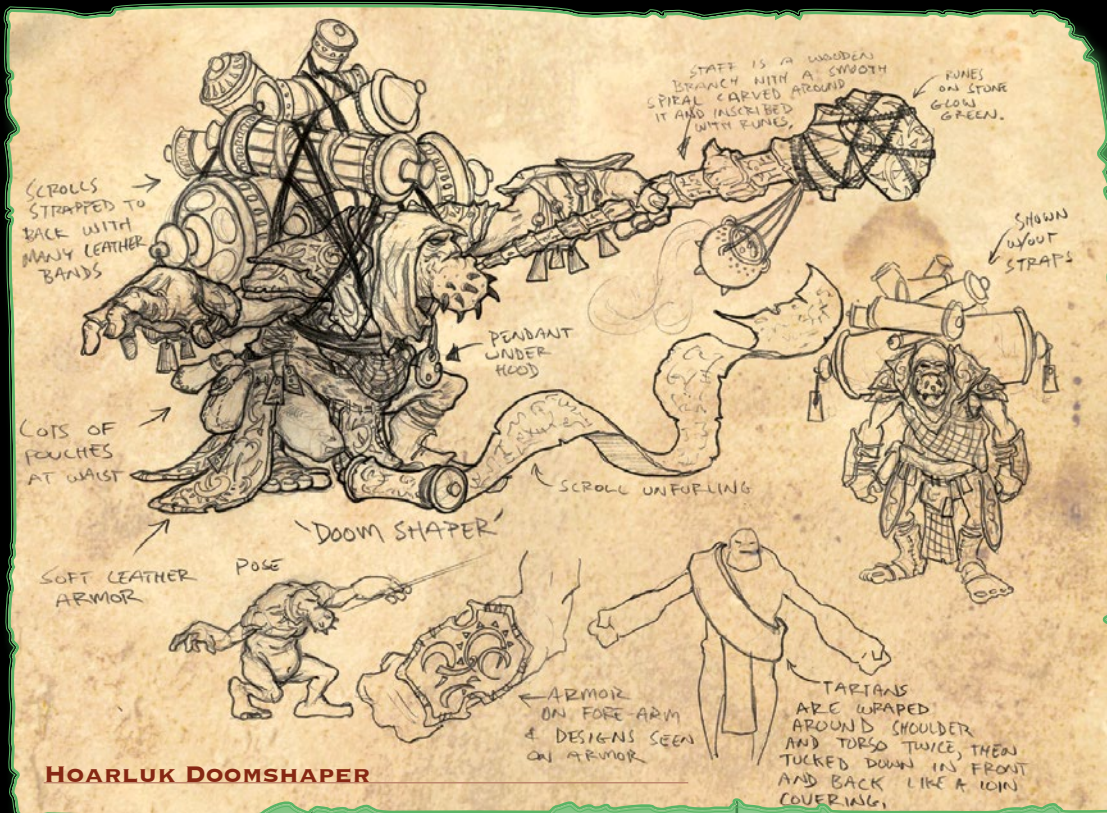 STAFF IS A WOODEN
BRANCH WITH A SMOOTH
SPIRAL CARVED AROUND
IT AND INSCRIBED
WITH RUNES.
RUNES
ON STONE
GLOW
GREEN.
SCROLLS
STRAPPED TO
BACK WITH
MANY LEATHER
BANDS
SHOWN
W/OUT
STRAPS
PENDANT
UNDER
HOOD
LOTS OF
POUCHES
AT WAIST
SCROLL UNFURLING
'DOOM SHAPER'
SOFT LEATHER
ARMOR
POSE
ARMOR
ON FORE-ARM
& DESIGNS SEEN
ON ARMOR
TARTANS
ARE WRAPED
AROUND SHOULDER
AND TORSO TWICE, THEN
TUCKED DOWN IN FRONT
AND BACK LIKE A LOIN
COVERING.
HOARLUK DOOMSHAPER